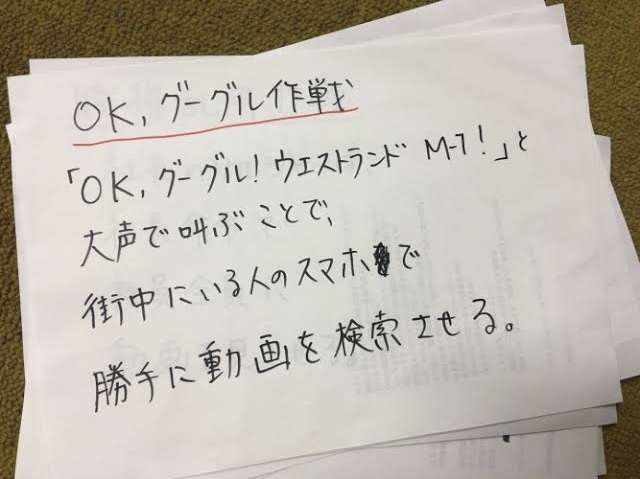 OK,グーグル作戦
「OK,グーグル!ウエストランド M-1!」と
大声で叫ぶことで、
街中にいる人のスマホで
勝手に動画を検索させる。